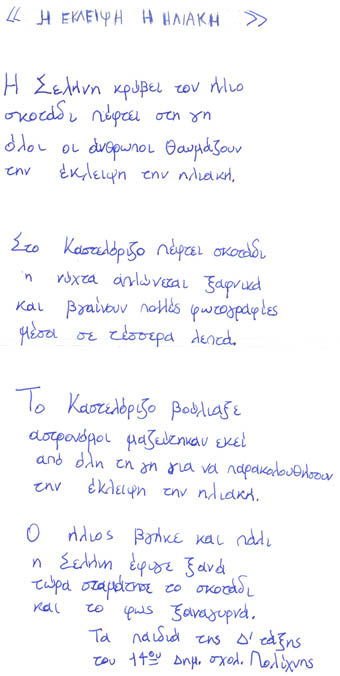 « Η ΕΚΛΕΙΨΗ Η ΗΛΙΑΚΗ »
Η Σελήνη κρύβει τον ήλιο
σκοτάδι πέφτει στη γη
όλοι οι άνθρωποι θαυμάζουν
την έκλειψη την ηλιακή.
Στο Καστελόριζο πέφτει σκοτάδι
η νύχτα απλώνεται ξαφνικά
και βγαίνουν πολλές φωτογραφίες
μέσα σε τέσσερα λεπτά.
Το Καστελόριζο βούλιαξε
αστρονόμοι μαζεύτηκαν εκεί
από όλη τη γη για να παρακολουθήσουν
την έκλειψη την ηλιακή.
Ο ήλιος βγήκε και πάλι
η Σελήνη έφυγε ξανά
τώρα σταμάτησε το σκοτάδι
και το φως ξαναγυρνά.
Τα παιδιά της Δ' τάξης
του 14ου Δημ. σχολ. Πολίχνης